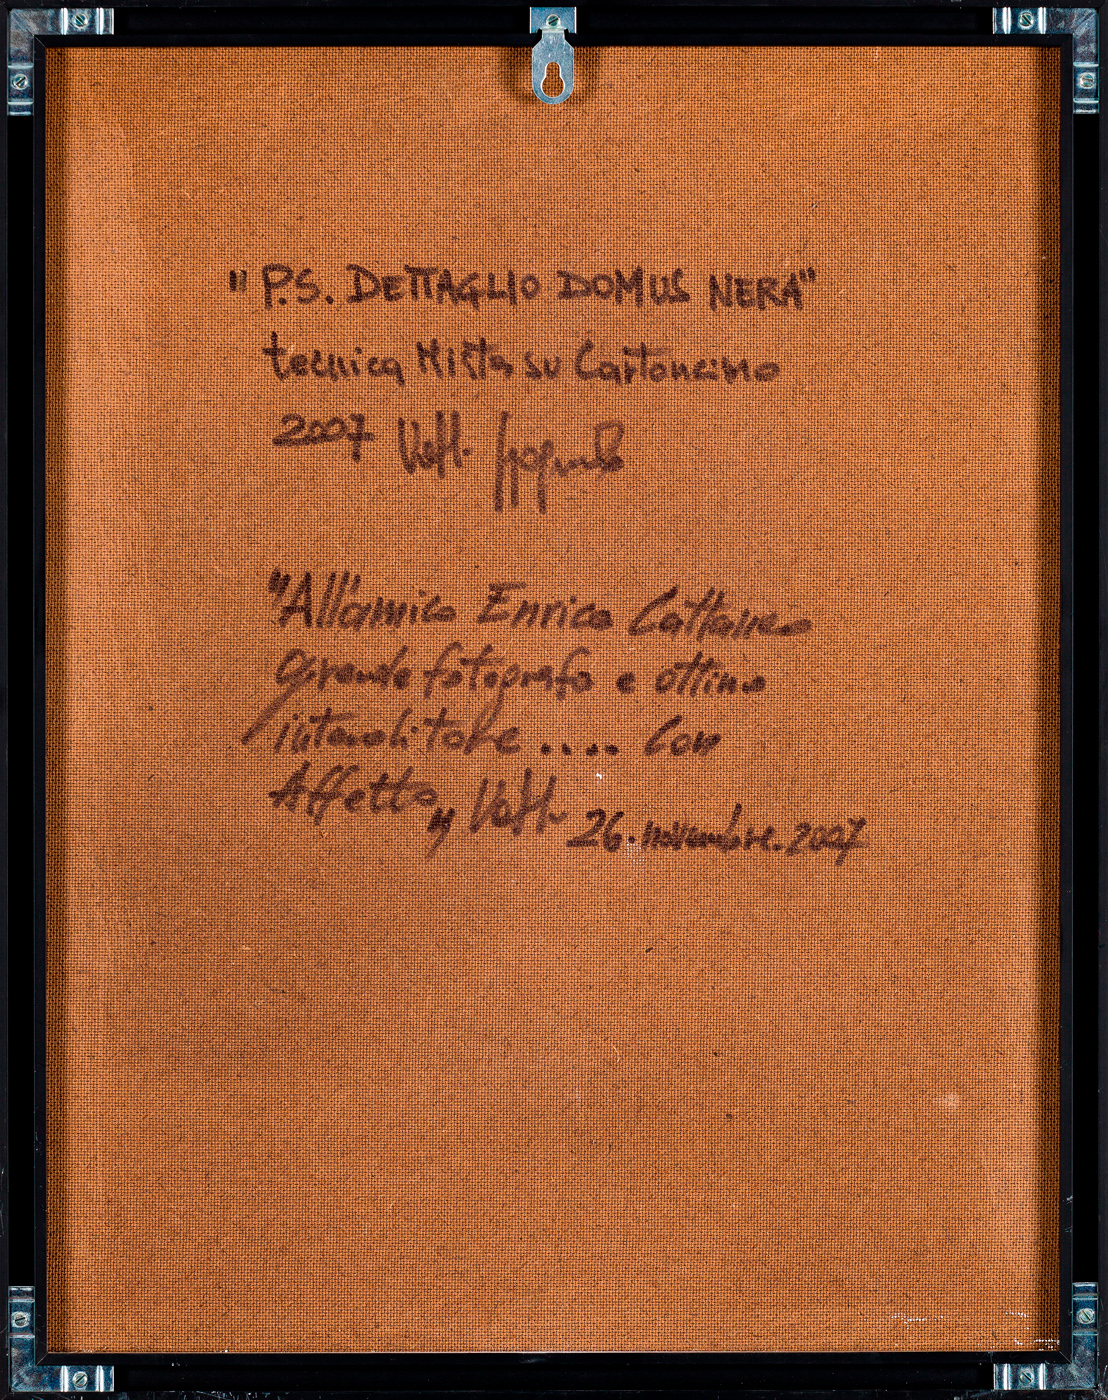 "P.S. DETTAGLIO DOMUS NERA"
tecnica Mista su Cartoncino
2007
"All'amico Enrico Cattaneo
grande fotografo e ottimo
.... Con
Affetto,
26.novembre.2007